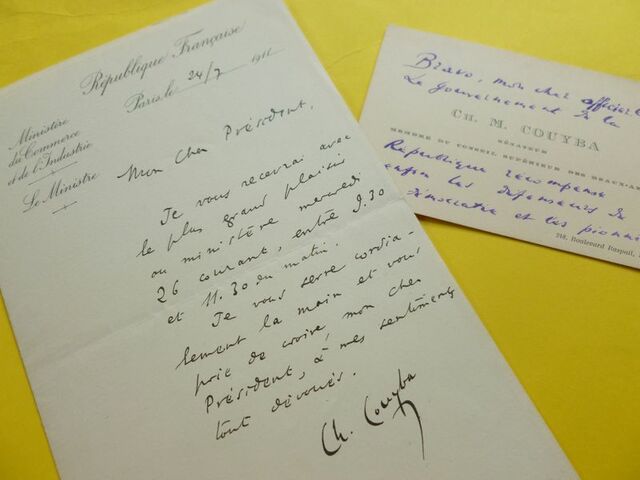 République Française
Paris le 24/7 1911
Ministère
du Commerce
et de l'Industrie
Le Ministre
Mon Cher Président,
Je vous recevrai avec
le plus grand plaisir
au ministère mercredi
26 courant, entre 9.30
et 11.30 du matin.
Je vous serre cordia-
lement la main et vous
prie de croire, mon cher
Président, à mes sentiments
tout dévoués.
Ch. Couyba
Bravo, mon cher officier!
Le gouvernement de la
CH. M. COUYBA
SÉNATEUR
MEMBRE DU CONSEIL SUPÉRIEUR DES BEAUX-A
République récompense
enfin les défenseurs de
démocratie et les pionni
218, Boulevard Raspail,